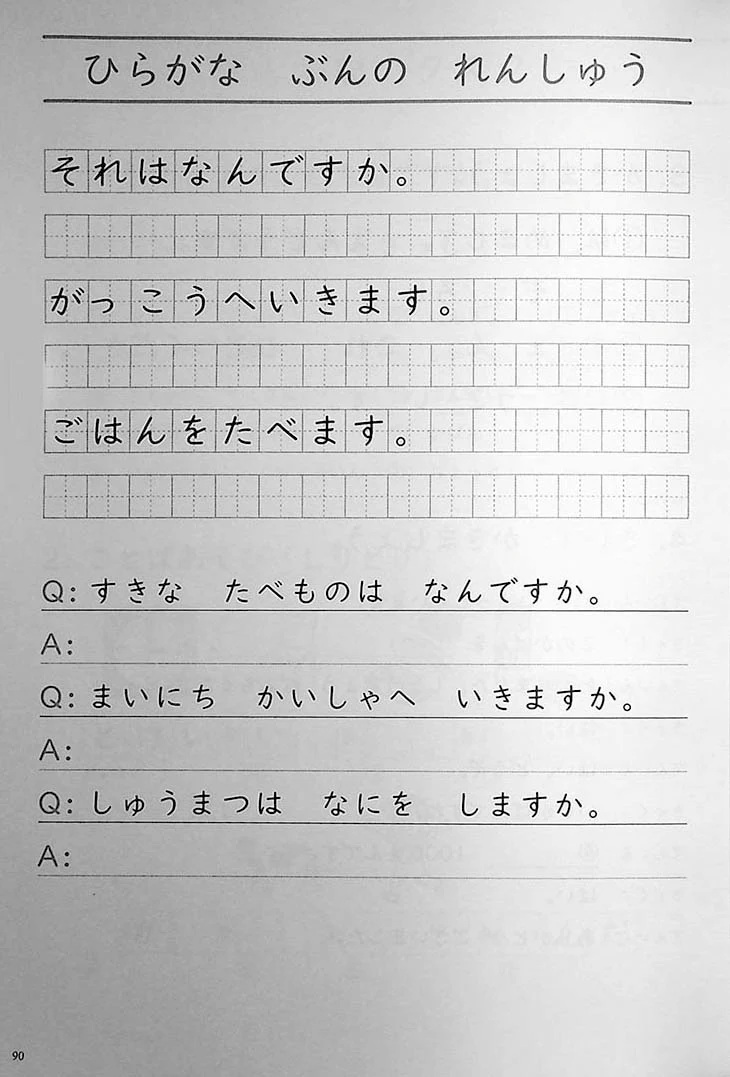 ひらがな　ぶんの　れんしゅう
それはなんですか。
がっこうへいきます。
ごはんをたべます。
Q: すきな　たべものは　なんですか。
A:
Q: まいにち　かいしゃへ　いきますか。
A:
Q: しゅうまつは　なにを　しますか。
A:
90